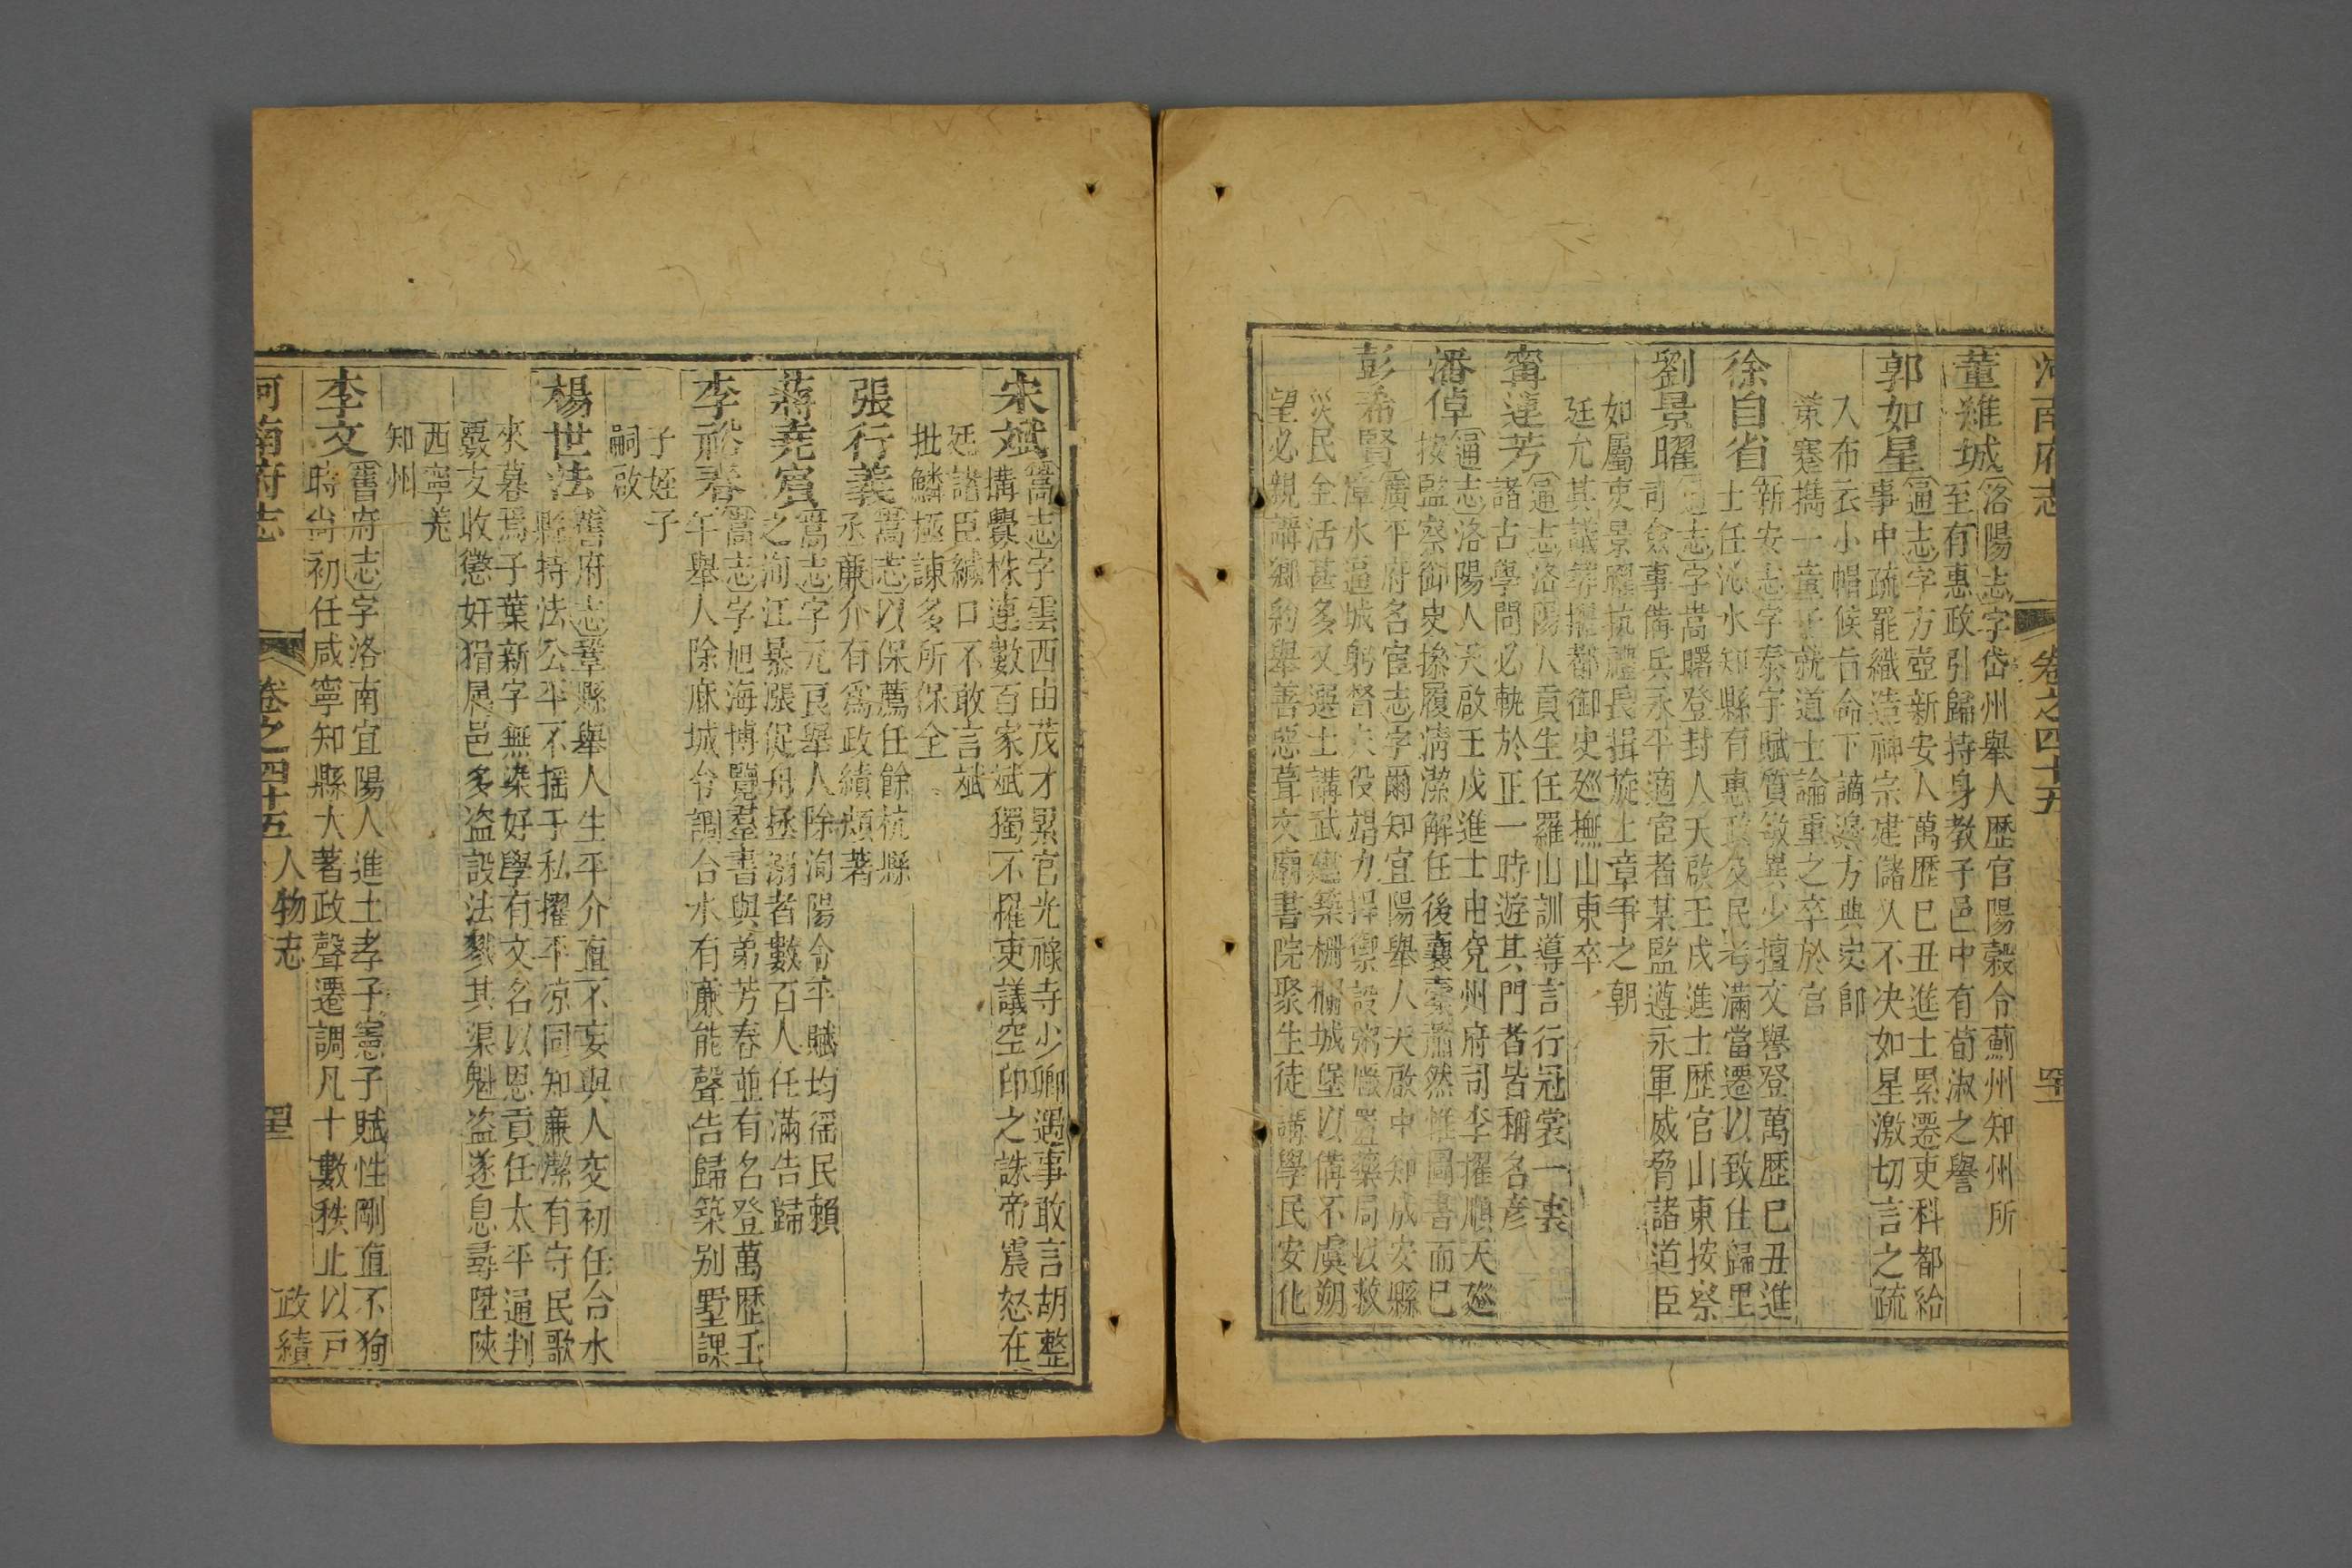 河南府志 卷之四十五
董維城 洛陽志字岱州舉人歷官陽穀令薊州知州所
至有惠政引歸持身教子邑中有荀淑之譽
郭如星 通志字方壺新安人萬歷已丑進士累遷吏科都給
事中疏罷織造神宗建儲久不决如星激切言之疏
入布衣小帽候旨命下謫邊方典史卽
策蹇攜一童子就道士論重之卒於官
徐自省 新安志字泰宇賦質敏異少擅文譽登萬歷巳丑進
士任沁水知縣有惠政及民考滿當遷以致仕歸里
劉景曜 通志字嵩曙登封人天啟壬戌進士歷官山東按察
司僉事備兵永平適宦者某監遵永軍威脅諸道臣
如屬吏景曜抗禮長揖旋上章爭之朝
廷允其議尋擢都御史廵撫山東卒
甯蓮芳 通志洛陽人貢生任羅山訓導言行冠裳一衷
諸古學問必軌於正一時遊其門者皆稱名彦
潘倬 通志洛陽人天啟壬戌進士由兗州府司李擢順天廵
按監察御史操履清潔解任後囊橐蕭然惟圖書而已
彭希賢 廣平府名宦志字爾知宜陽舉人天啟中知成安縣
漳水逼城躬督夫役竭力捍禦設粥廠置藥局以救
災民全活甚多又選士講武建築柵欄城堡以備不虞朔
望必親講鄉約舉善惡葺文廟書院聚生徒講學民安化
宋斌 嵩志字雲西由茂才累官光祿寺少卿遇事敢言胡整
搆釁株連數百家斌獨不罹吏議空印之誅帝震怒在
廷諸臣緘口不敢言斌
批鱗極諫多所保全
張行義 嵩志以保薦任餘杭縣
丞廉介有爲政績頗著
蔣堯賓 嵩志字元良舉人除洵陽令平賦均徭民賴
之洵江暴漲促舟拯溺者數百人任滿告歸
李裕春 嵩志字旭海博覽羣書與弟芳春並有名登萬歷壬
午舉人除麻城令調合水有廉能聲告歸築别墅課
子姪子
嗣啟
楊世法 舊府志鞏縣舉人生平介直不妄與人交初任合水
縣持法公平不搖于私擢平凉同知廉潔有守民歌
來暮爲子葉新字無染好學有文名以恩貢任太平通判
覈支收懲奸猾屬邑多盗設法剹其渠魁盗遂息尋陞陜
西寧羌
知州
李文 舊府志字洛南宜陽人進士孝子憲子賦性剛直不狥
時尙初任咸寧知縣大著政聲遷調凡十數秩止以戸
河南府志 卷之四十五 人物志 政績